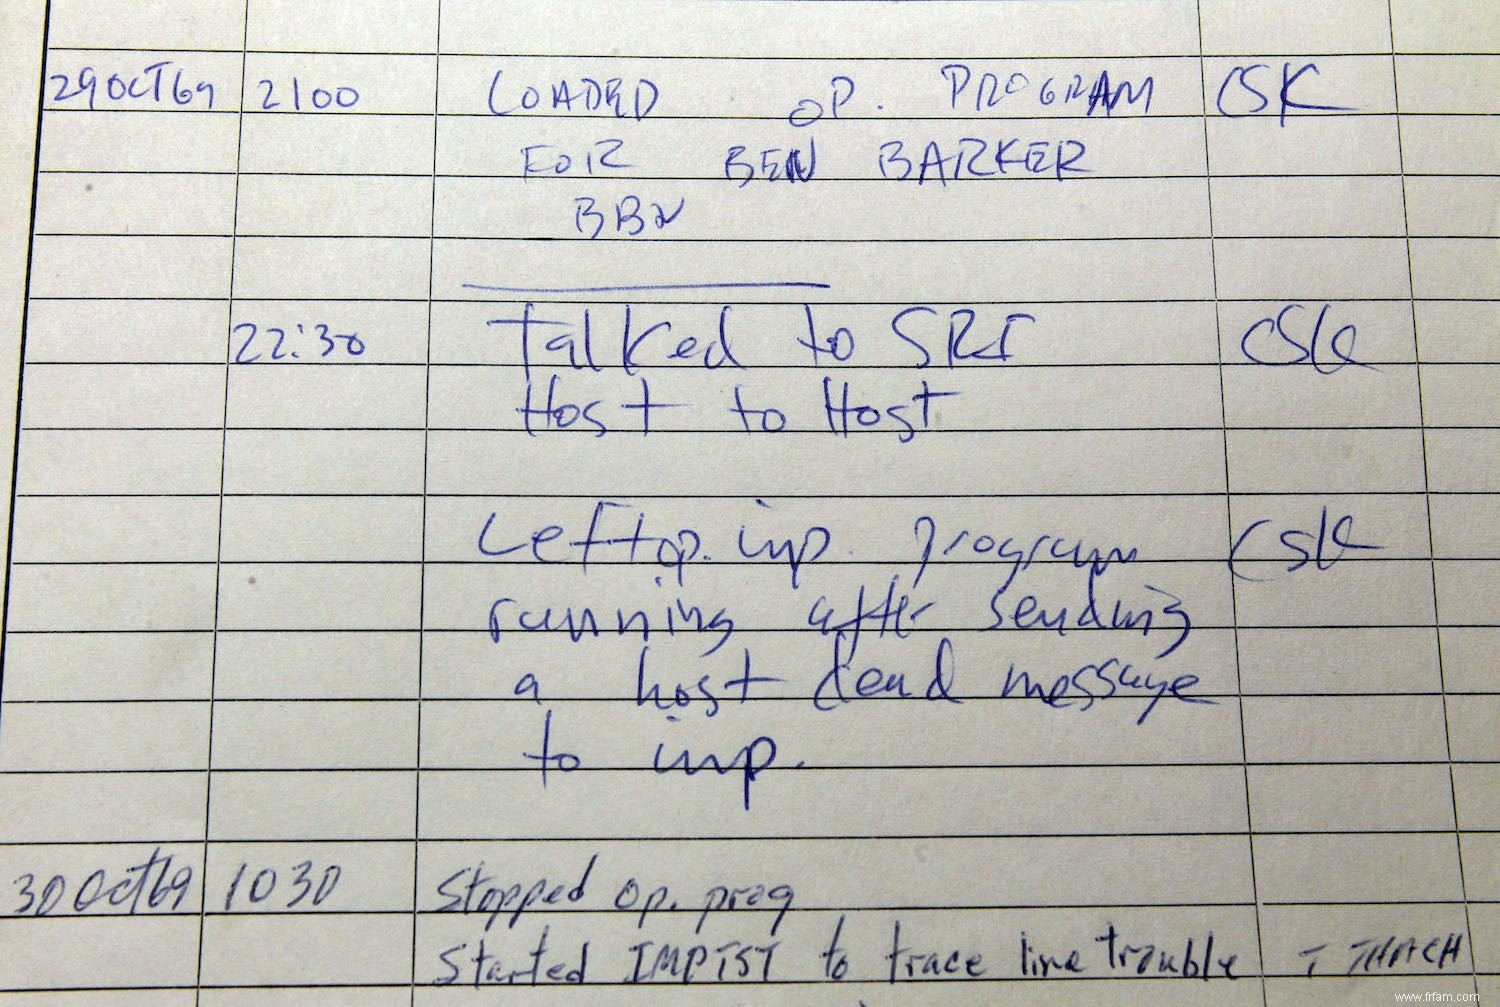 29OCT69 2100 LOADED OP. PROGRAM CSK
FOR BEN BARKER
BBN
22:30 Talked to SRI CSK
Host to Host
Left op. imp. program CSK
running after sending
a host dead message
to imp.
30Oct69 1030 Stopped op. prog
Started IMPTST to trace line trouble T THACH
www.frfam.com